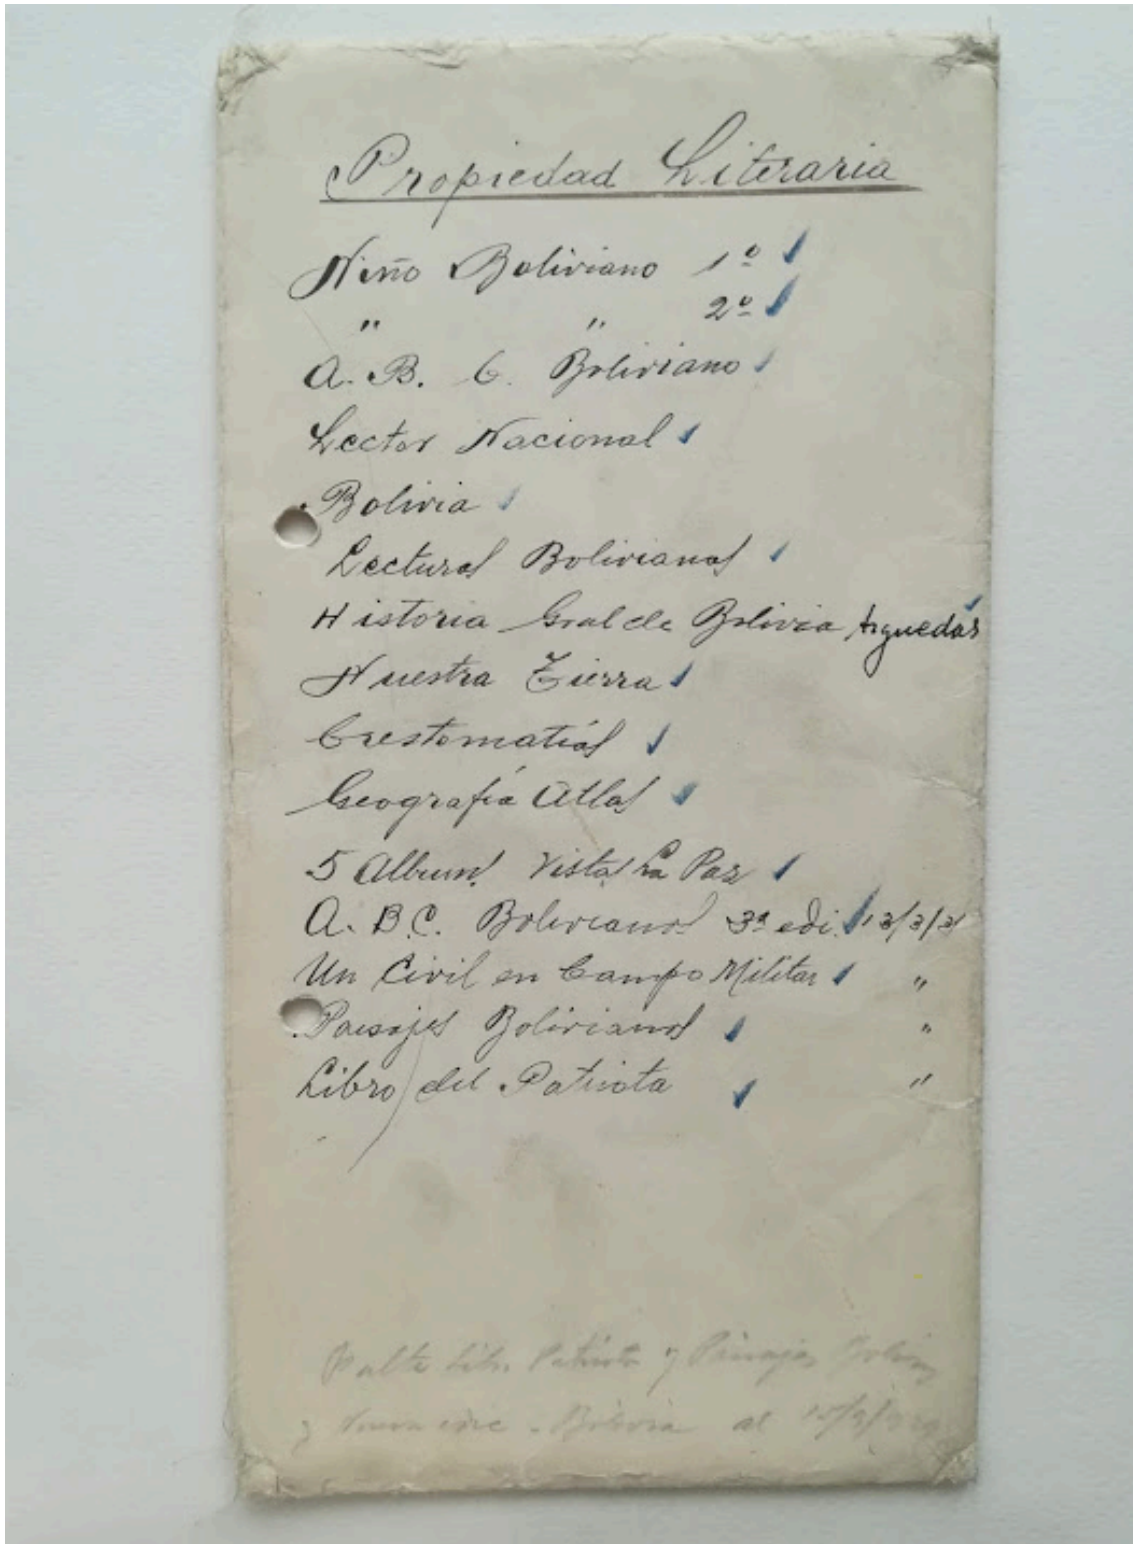 Propiedad Literaria
Niño Boliviano 1º
" " 2º
A. B. C. Boliviano
Lector Nacional
Bolivia
Lecturas Bolivianas
Historia Gral de Bolivia Arguedas
Nuestra Tierra
Crestomatías
Geografía Atlas
5 Album. Vistas La Paz
A. B. C. Boliviano 3ª edi. 13/3/31
Un Civil en Campo Militar "
Paisajes Bolivianos "
Libro del Patriota "
Falta Lib. Patriota y Paisajes
y Bolivia al